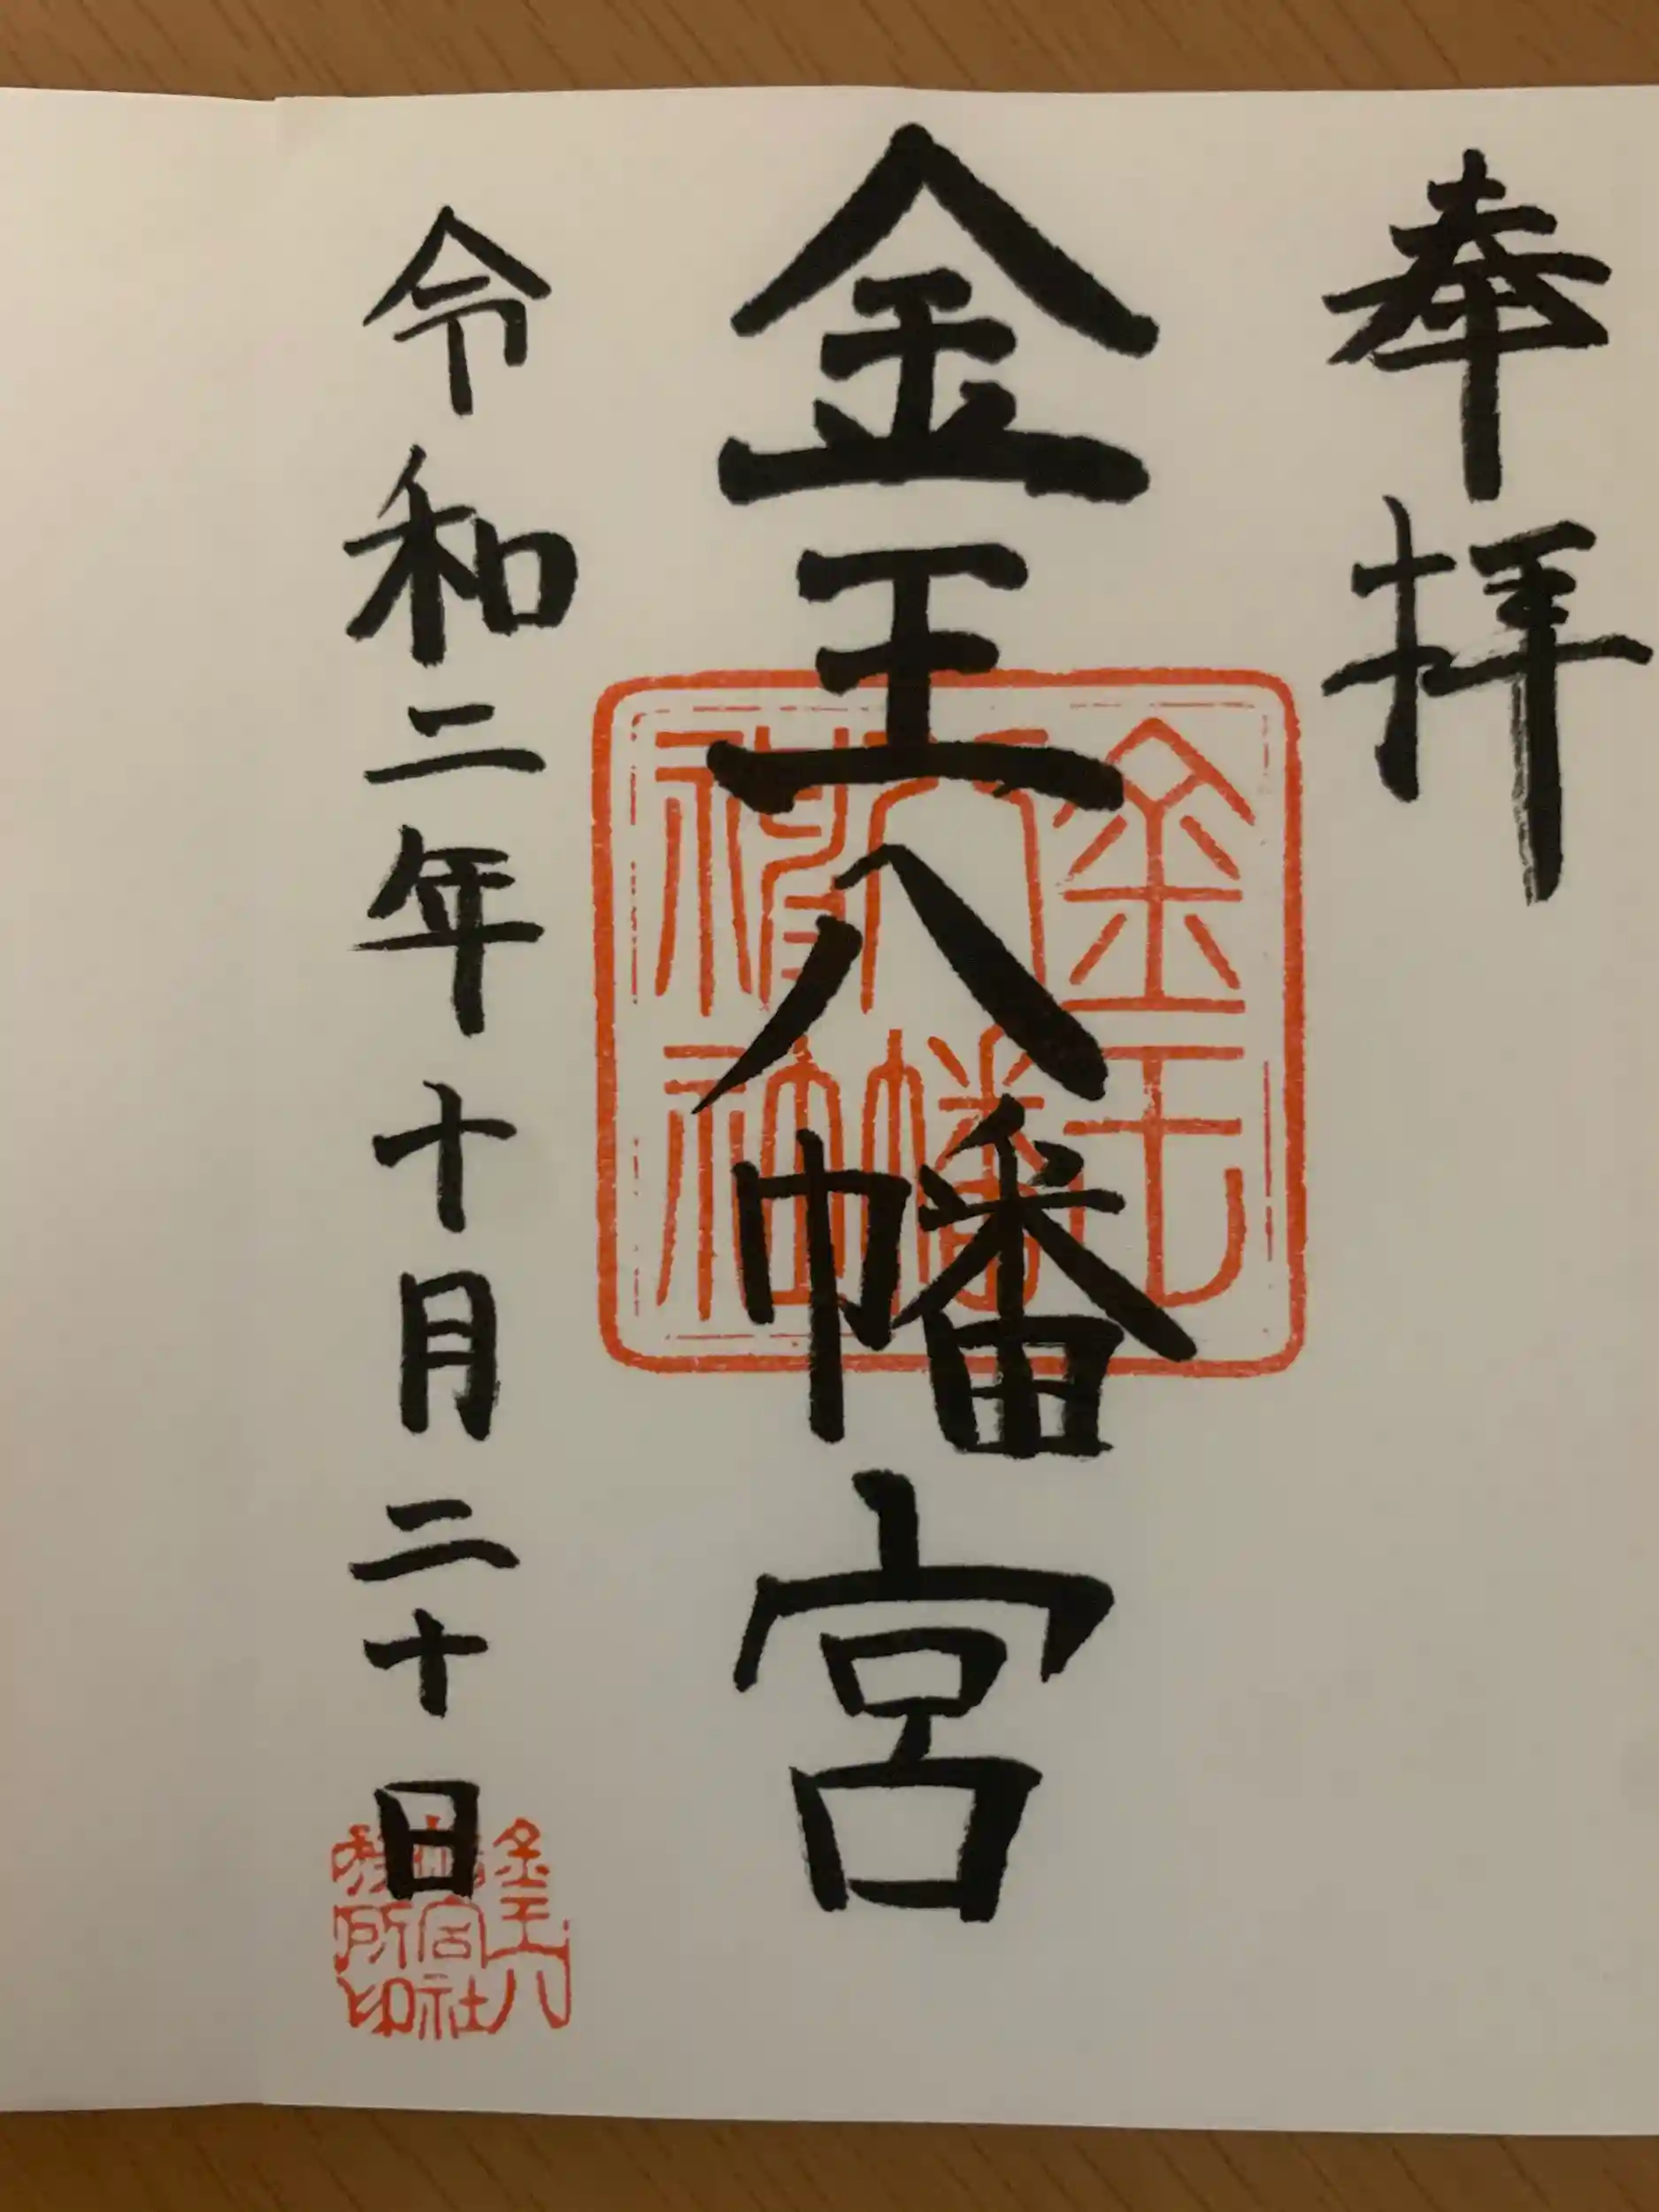 奉拝
金王八幡宮
金王
八幡
神社
令和二年十月二十日
金王八
幡宮社
務所印